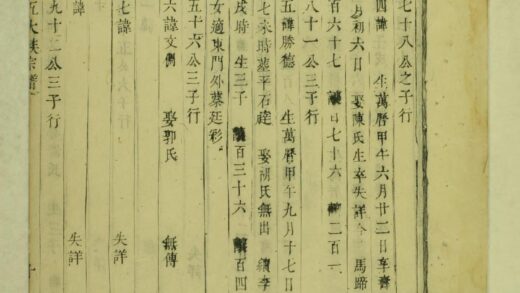 七十八公之子行
四諱 生萬曆甲午六月廿二日
月初六日 娶陳氏生卒失詳 馬蹄
百六十七 百七十六 二百一
八十一公三子行
五諱勝德 生萬曆甲午九月十七日
七未時墓平石 娶胡氏無出 續李
戌時 生三子 百三十六 百四
女適東門外蔡廷彩
五十六公三子行
六諱文 娶郭氏 無傳
七諱正 失詳
諱 失詳
九十二公三子行
五大 宗譜